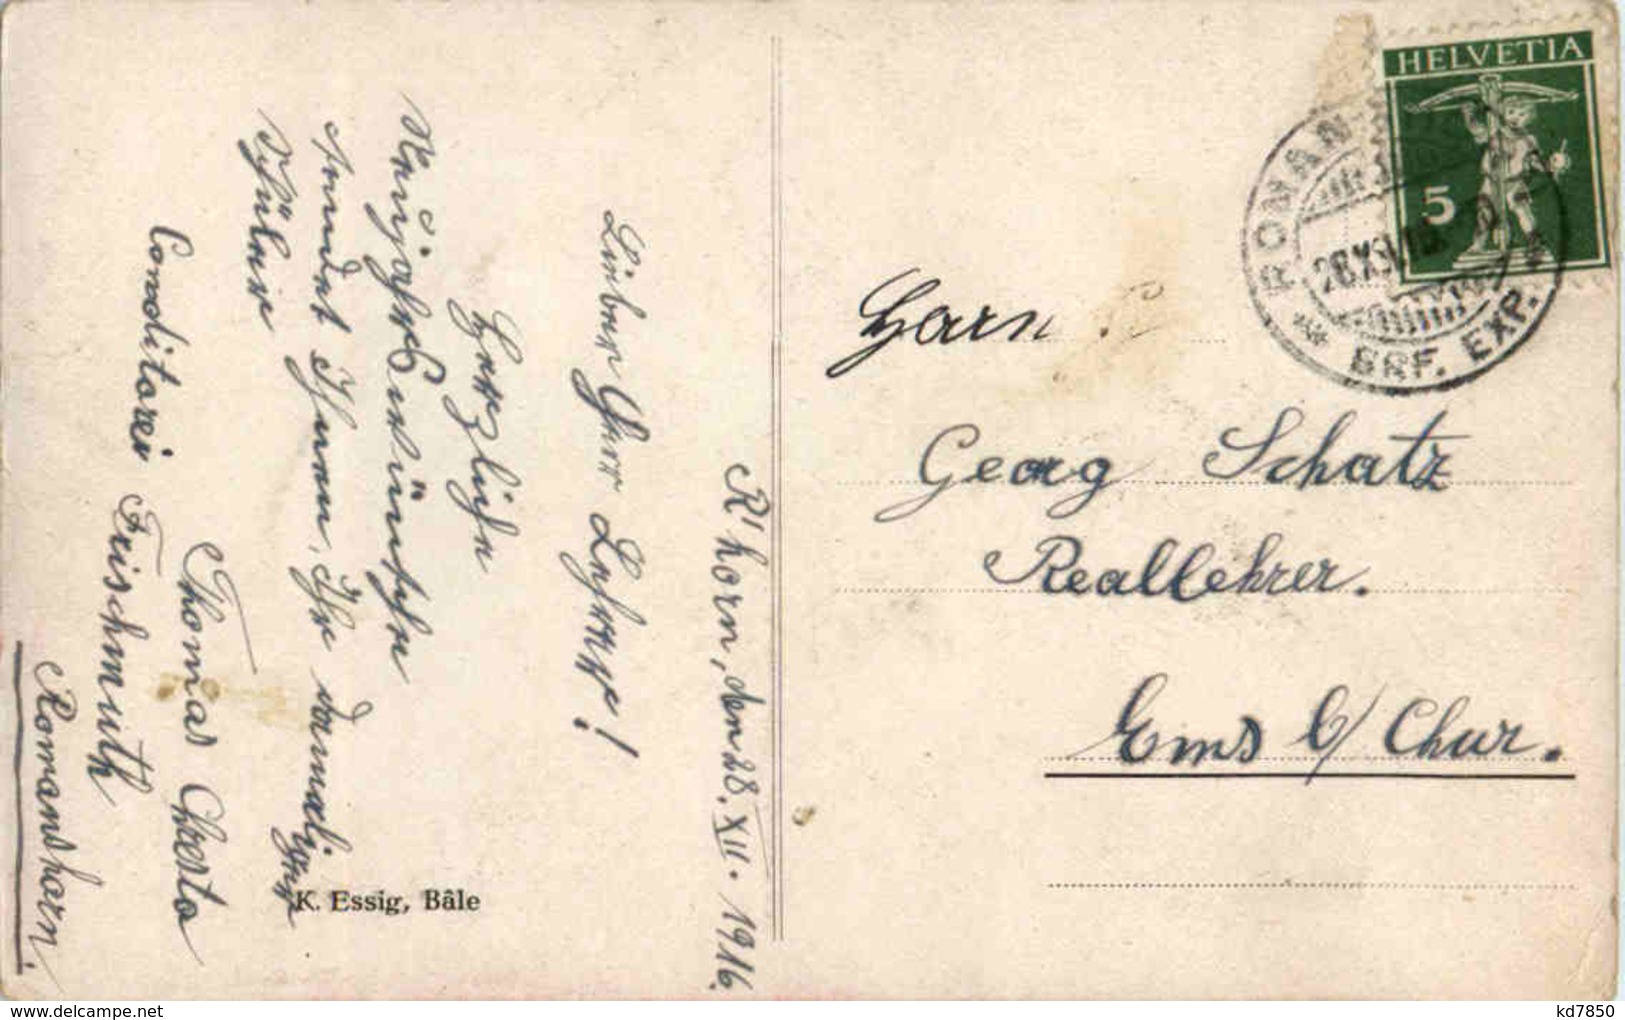 R'horn, den 28. XII. 1916.
Lieber Herr Lehrer!
Herzlichen
Neujahrs Glückwünsche
sendet Ihnen, Ihr damaliger
Schüler
Thomas
Conditorei Frischmuth
Romanshorn.
K. Essig, Bâle
HELVETIA
5
BRF. EXP.
Herrn
Georg Schatz
Reallehrer.
Ems b/ Chur.
kd7850